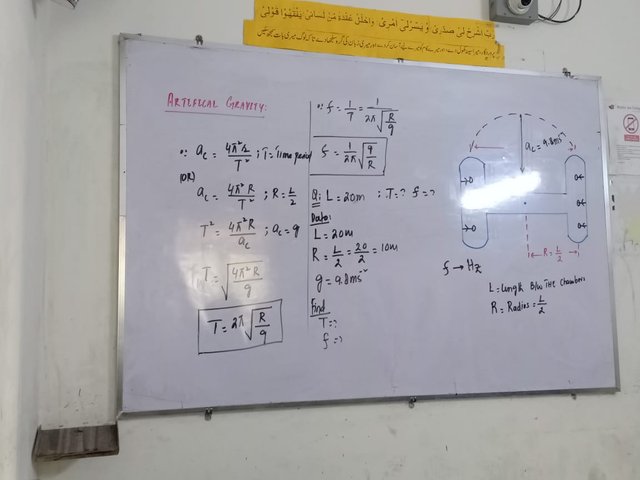 رَبِّ اشْرَحْ لِیْ صَدْرِیْ وَ یَسِّرْ لِیْ اَمْرِیْ وَاحْلُلْ عُقْدَةً مِّنْ لِّسَانِیْ یَفْقَهُوْا قَوْلِیْ
ARTIFICAL GRAVITY:
∵ a_c = 4π²r/T² ; T = Time period
(OR)
a_c = 4π²R/T² ; R = L/2
T² = 4π²R/a_c ; a_c = g
T = √(4π²R/g)
T = 2π√(R/g)
∵ f = 1/T = 1/(2π√(R/g))
f = 1/2π √(g/R)
Q: L = 20m ; T = ? f = ?
Data:
L = 20m
R = L/2 = 20/2 = 10m
g = 9.8ms⁻²
Find
T = ?
f = ?
a_c = 9.8ms⁻²
R = L/2
f → Hz
L = Length B/w The Chambers
R = Radius = L/2